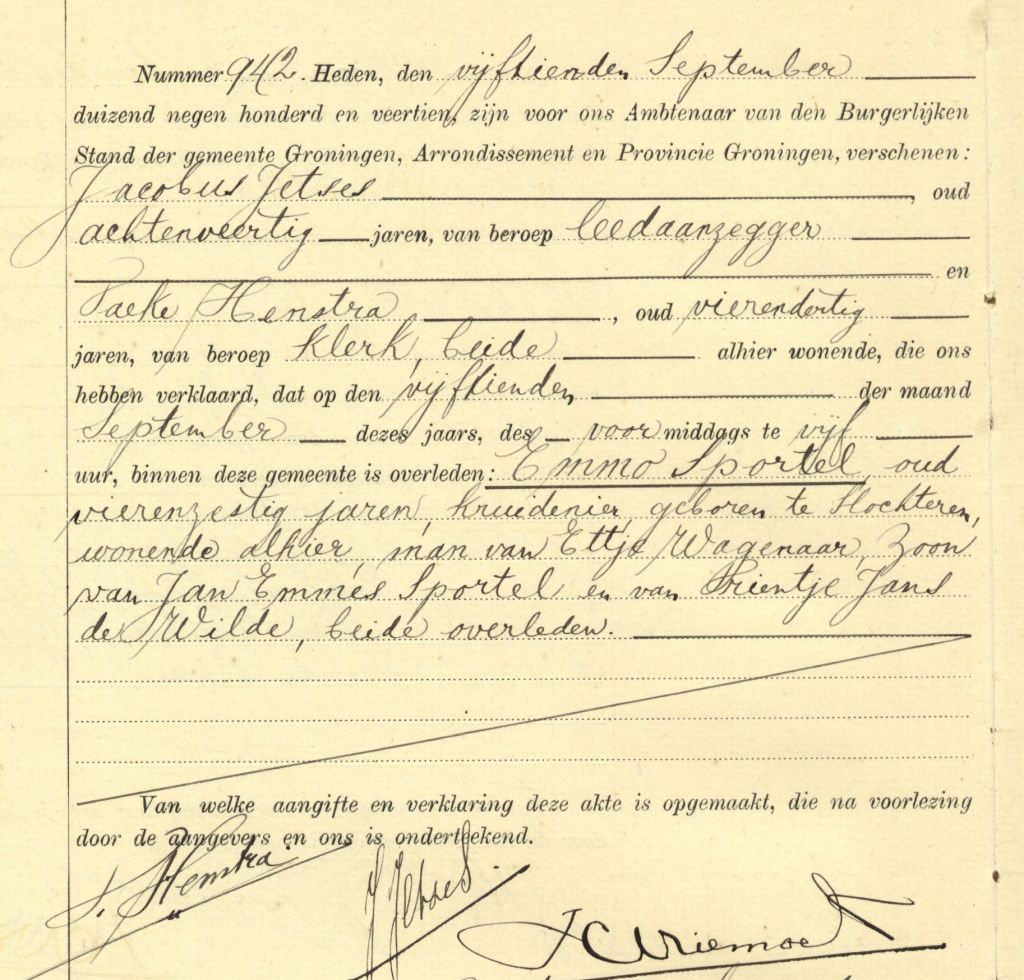 Nummer 942. Heden, den vijftienden September
duizend negen honderd en veertien, zijn voor ons Ambtenaar van den Burgerlijken
Stand der gemeente Groningen, Arrondissement en Provincie Groningen, verschenen:
Jacobus Jetses, oud
achtenveertig jaren, van beroep leedaanzegger
en
Paeke Henstra, oud vierendertig
jaren, van beroep klerk, beide alhier wonende, die ons
hebben verklaard, dat op den vijftienden der maand
September dezes jaars, des voormiddags te vijf
uur, binnen deze gemeente is overleden: Emmo Sportel, oud
vierenzestig jaren, kruidenier, geboren te Slochteren,
wonende alhier, man van Ettje Wagenaar, zoon
van Jan Emmes Sportel en van Trientje Jans
de Wilde, beide overleden.
Van welke aangifte en verklaring deze akte is opgemaakt, die na voorlezing
door de aangevers en ons is onderteekend.
Henstra
J Jetses.